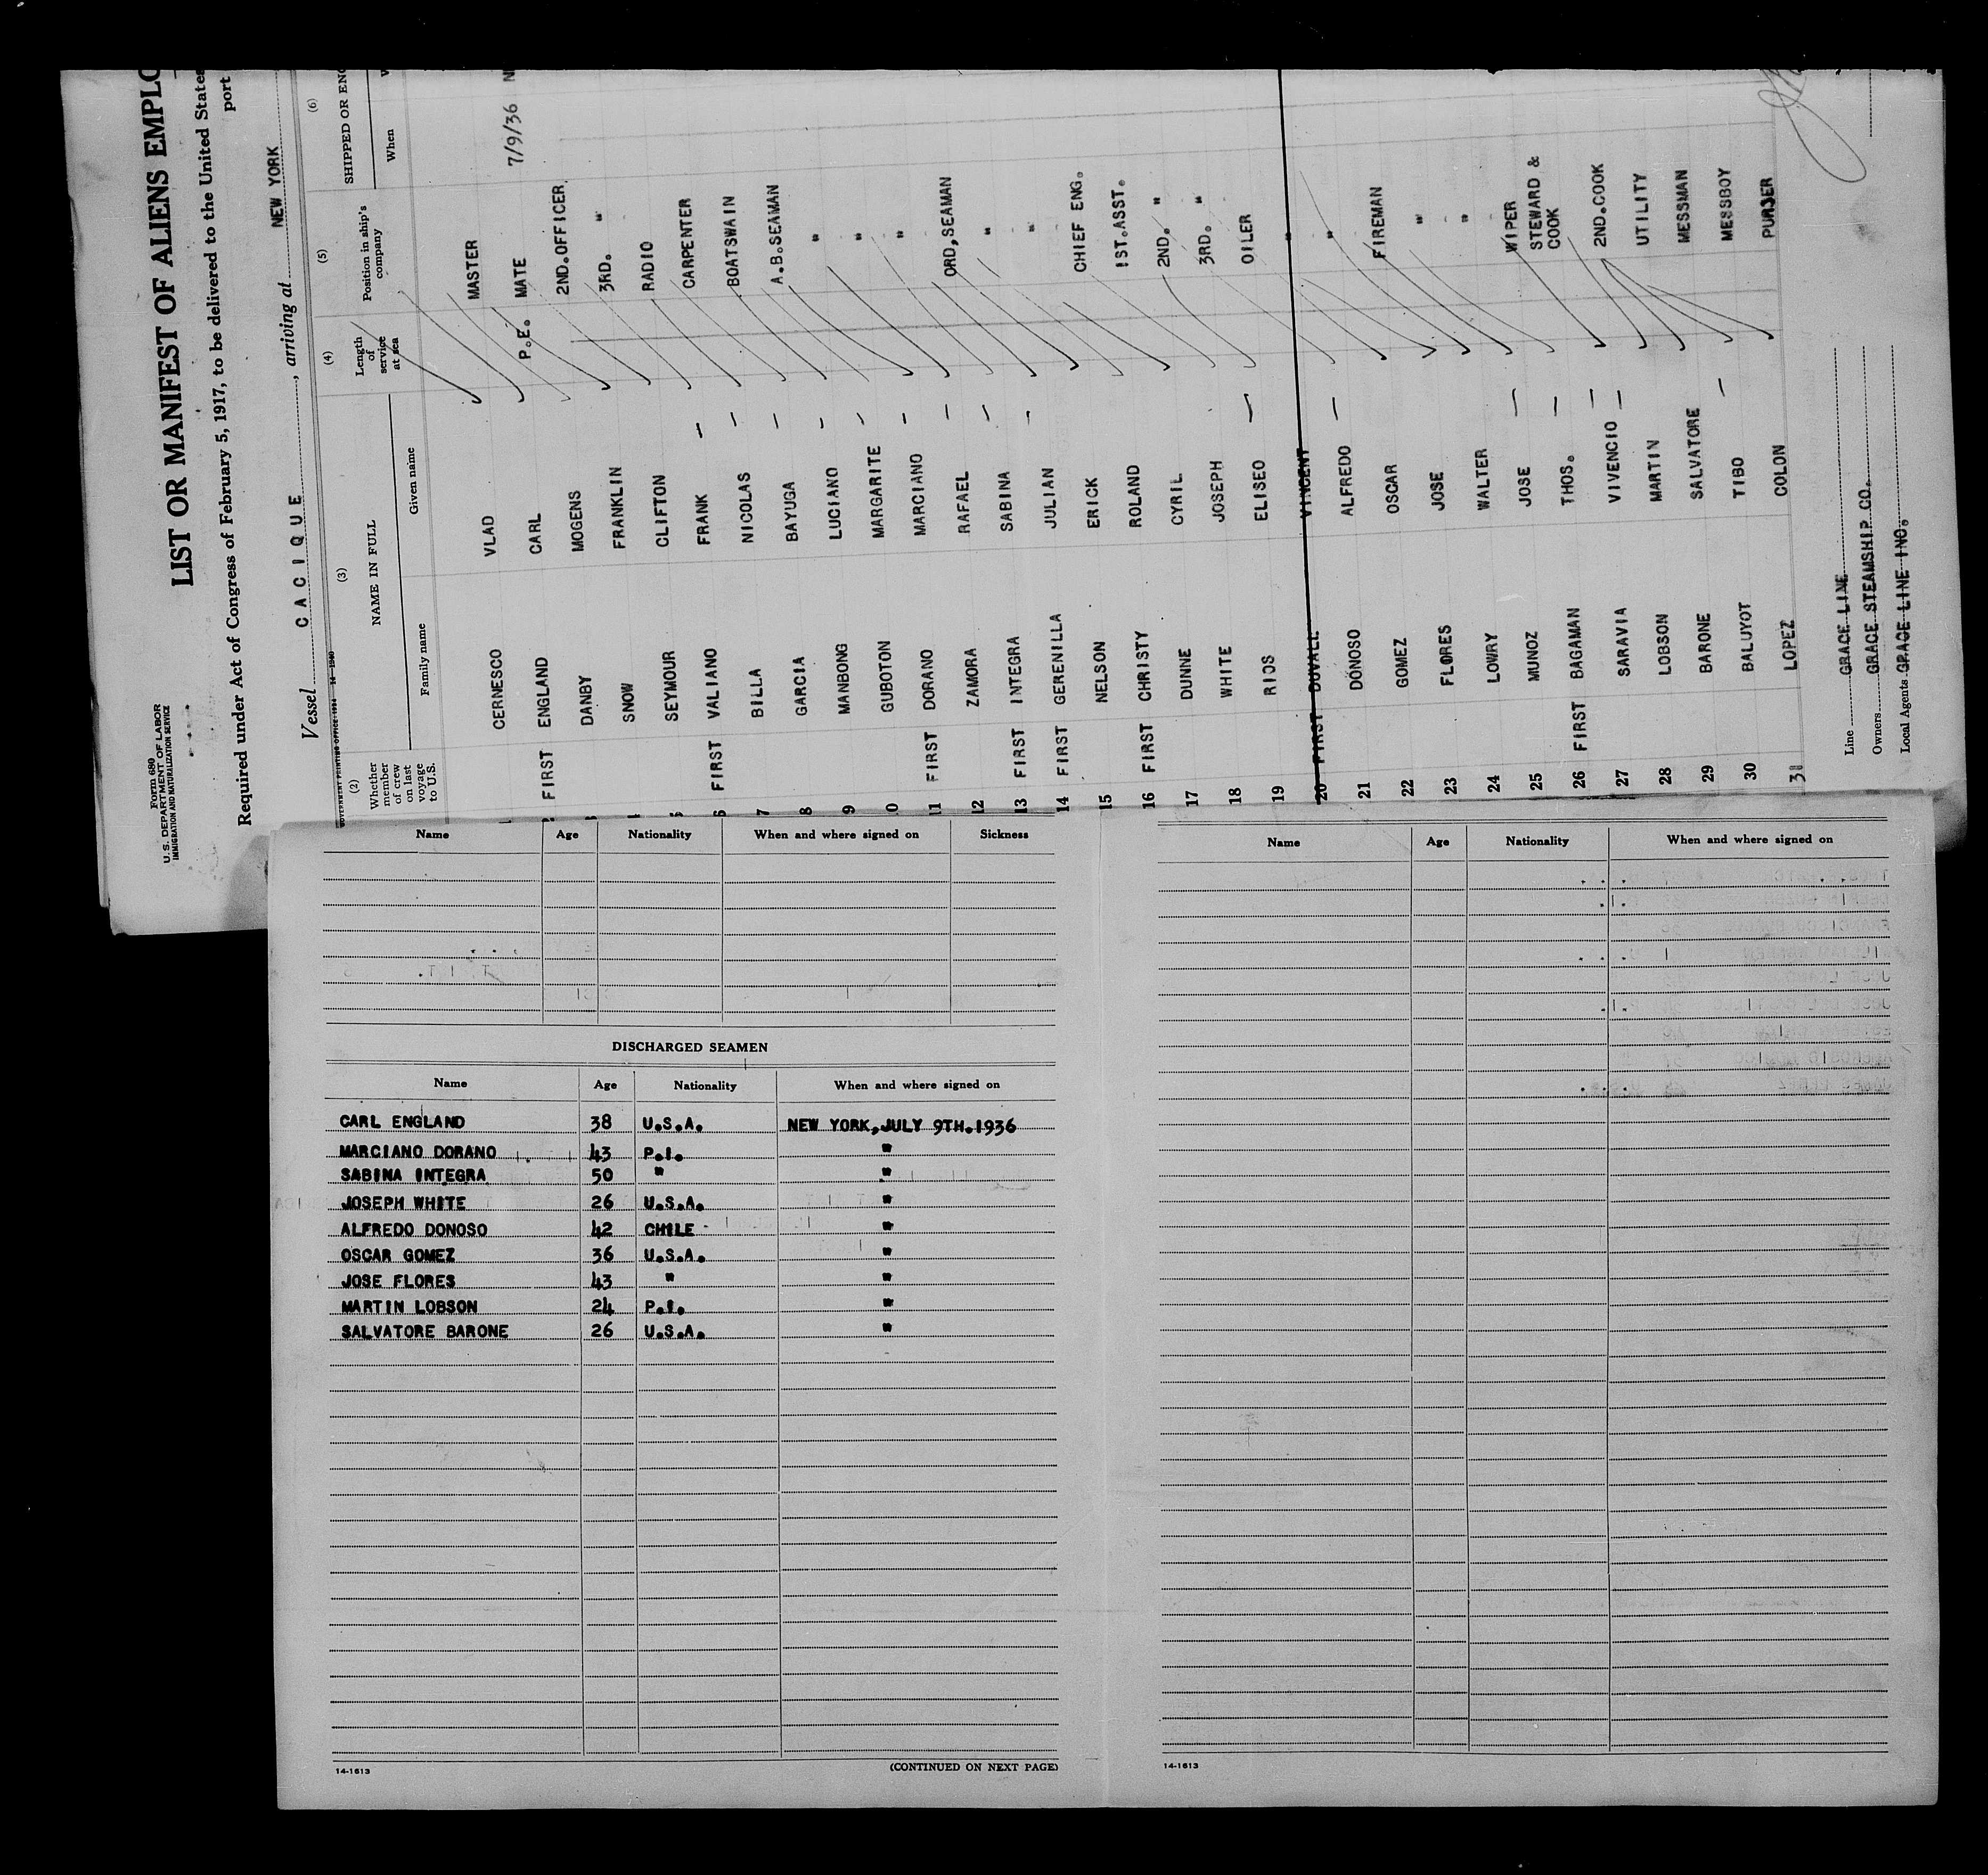 Form 680
U. S. DEPARTMENT OF LABOR
IMMIGRATION AND NATURALIZATION SERVICE
LIST OR MANIFEST OF ALIENS EMPLO
Required under Act of Congress of February 5, 1917, to be delivered to the United States
port
Vessel CACIQUE, arriving at NEW YORK
(2) (3) (4) (5) (6)
Whether member of crew on last voyage to U.S. NAME IN FULL Length of service at sea Position in ship's company SHIPPED OR ENG
Family name Given name When
CERNESCO VLAD MASTER
FIRST ENGLAND CARL P.E. MATE 7/9/36
DANBY MOGENS 2ND.OFFICER
SNOW FRANKLIN 3RD. "
SEYMOUR CLIFTON RADIO
6 FIRST VALIANO FRANK CARPENTER
7 BILLA NICOLAS BOATSWAIN
8 GARCIA BAYUGA A.B.SEAMAN
9 MANBONG LUCIANO "
10 GUBOTON MARGARITE "
11 FIRST DORANO MARCIANO "
12 ZAMORA RAFAEL ORD,SEAMAN
13 FIRST INTEGRA SABINA "
14 FIRST GERENILLA JULIAN "
15 NELSON ERICK CHIEF ENG.
16 FIRST CHRISTY ROLAND 1ST.ASST.
17 DUNNE CYRIL 2ND. "
18 WHITE JOSEPH 3RD. "
19 RIOS ELISEO OILER
20 FIRST DUVALL VINCENT "
21 DONOSO ALFREDO "
22 GOMEZ OSCAR FIREMAN
23 FLORES JOSE "
24 LOWRY WALTER "
25 MUNOZ JOSE WIPER
26 FIRST BAGAMAN THOS. STEWARD & COOK
27 SARAVIA VIVENCIO 2ND.COOK
28 LOBSON MARTIN UTILITY
29 BARONE SALVATORE MESSMAN
30 BALUYOT TIBO MESSBOY
31 LOPEZ COLON PURSER
Line GRACE LINE
Owners GRACE STEAMSHIP CO.
Local Agents GRACE LINE INC.
Name Age Nationality When and where signed on Sickness
DISCHARGED SEAMEN
Name Age Nationality When and where signed on
CARL ENGLAND 38 U.S.A. NEW YORK,JULY 9TH.1936
MARCIANO DORANO 43 P.I. "
SABINA INTEGRA 50 " "
JOSEPH WHITE 26 U.S.A. "
ALFREDO DONOSO 42 CHILE "
OSCAR GOMEZ 36 U.S.A. "
JOSE FLORES 43 " "
MARTIN LOBSON 24 P.I. "
SALVATORE BARONE 26 U.S.A. "
14-1613
(CONTINUED ON NEXT PAGE)
Name Age Nationality When and where signed on
14-1613